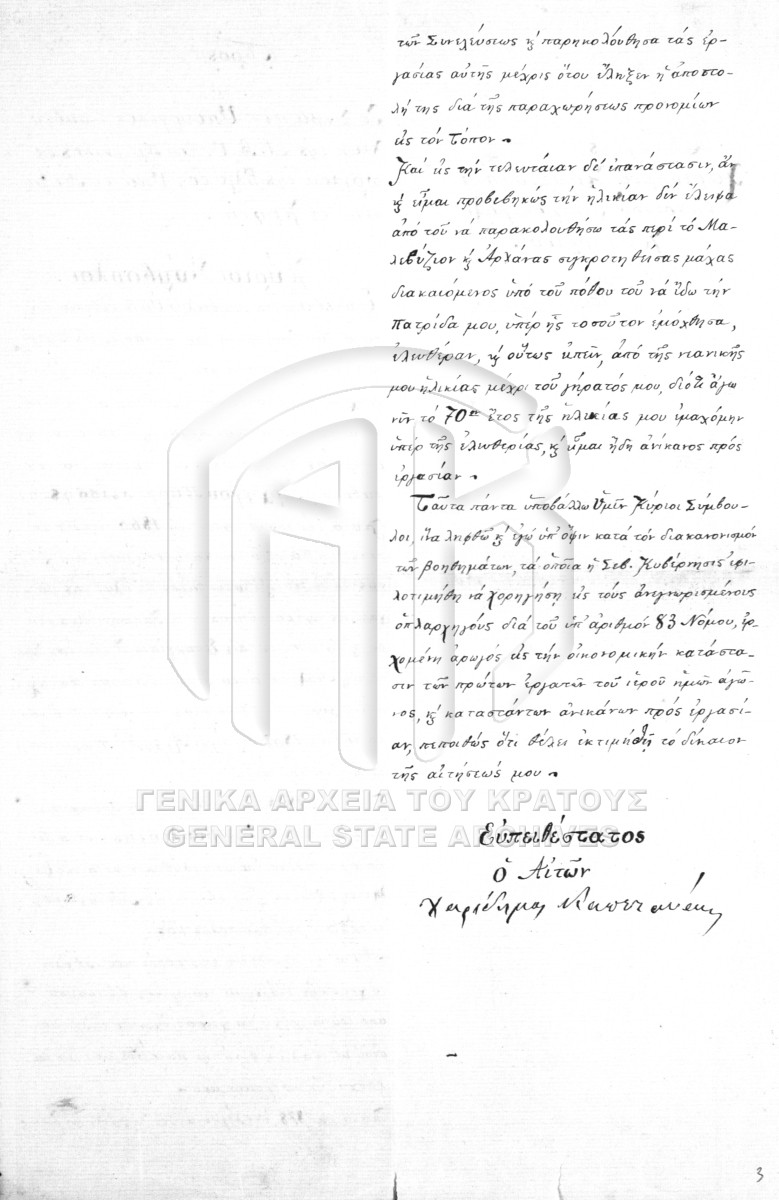 τῶν Συνελεύσεως κ᾽ παρηκολούθησα τάς ἐρ-
γασίας αὐτῆς μέχρις ὅτου ἔληξεν ἡ ἀποστο-
λή της διά τῆς παραχωρήσεως προνομίων
εἰς τόν Τόπον.
Καί εἰς τήν τελευταίαν δέ ἐπανάστασιν, ἄν
κ᾽ εἶμαι προβεβηκώς τήν ἡλικίαν δέν ἔλειψα
ἀπό τοῦ νά παρακολουθήσω τάς περί τό Μα-
λεβύζιον κ᾽ Ἀρχάνας συγκροτηθείσας μάχας
διακαιόμενος ὑπό τοῦ πόθου τοῦ νά ἴδω τήν
πατρίδα μου, ὑπέρ ἧς τοσοῦτον ἐμόχθησα,
ἐλευθέραν, κ᾽ οὕτως εἰπεῖν, ἀπό τῆς νεανικῆς
μου ἡλικίας μέχρι τοῦ γήρατός μου, διότι ἄγω
νῦν τό 70ον ἔτος τῆς ἡλικίας μου ἐμαχόμην
ὑπέρ τῆς ἐλευθερίας, κ᾽ εἶμαι ἤδη ἀνίκανος πρός
ἐργασίαν.
Ταῦτα πάντα ὑποβάλλω Ὑμῖν Κύριοι Σύμβου-
λοι, ἵνα ληφθῶ κ᾽ ἐγώ ὑπ᾽ ὄψιν κατά τόν διακανονισμόν
τῶν βοηθημάτων, τά ὁποῖα ἡ Σεβ. Κυβέρνησις ἐφι-
λοτιμήθη νά χορηγήσῃ εἰς τούς ἀνεγνωρισμένους
ὁπλαρχηγούς διά τοῦ ὑπ᾽ ἀριθμόν 83 Νόμου, ἐρ-
χομένη ἀρωγός εἰς τήν οἰκονομικήν κατάστα-
σιν τῶν πρώτων ἐργατῶν τοῦ ἱεροῦ ἡμῶν ἀγῶ-
νος, κ᾽ καταστάντων ἀνικάνων πρός ἐργασί-
αν, πεποιθώς ὅτι θέλει ἐκτιμηθῇ τό δίκαιον
τῆς αἰτήσεώς μου.
ΓΕΝΙΚΑ ΑΡΧΕΙΑ ΤΟΥ ΚΡΑΤΟΥΣ
GENERAL STATE ARCHIVES
Εὐπειθέστατος
ὁ Αἰτῶν
Χαρίδημος Καπετανάκης
3